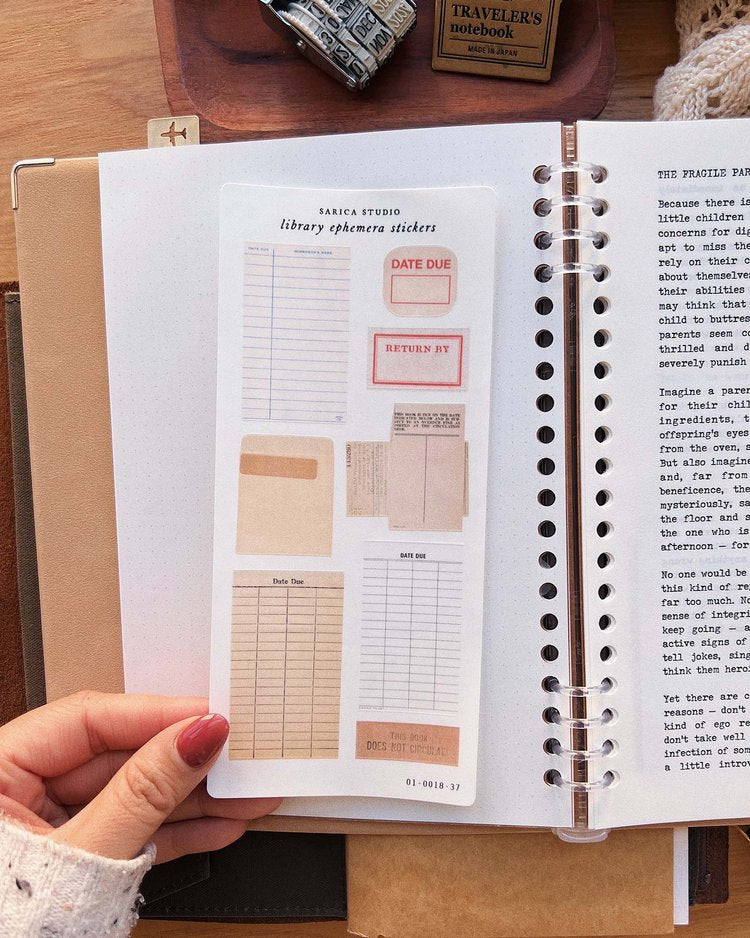 DEC
JAN
NOV
TRAVELER'S
notebook
MADE IN JAPAN
SARICA STUDIO
library ephemera stickers
DATE DUE
BORROWER'S NAME
DATE DUE
RETURN BY
THIS BOOK IS DUE ON THE DATE
INDICATED BELOW AND IS SUB-
JECT TO AN OVERDUE FINE AS
POSTED AT THE CIRCULATION
DESK.
DATE DUE
Date Due
THIS BOOK
DOES NOT CIRCULATE
01-0018-37
THE FRAGILE PAR
Because there is
little children
concerns for dig
apt to miss the
rely on their c
about themselves
their abilities
may think that
child to buttres
parents seem co
thrilled and d
severely punish
Imagine a paren
for their chil
ingredients, t
offspring's eyes
from the oven, a
But also imagine
and, far from
beneficence, the
mysteriously, sa
the floor and s
the one who is
afternoon — for
No one would be
this kind of re
far too much. No
sense of integri
keep going — a
active signs of
tell jokes, sing
think them heroi
Yet there are c
reasons — don't
kind of ego re
don't take well
infection of som
a little introv